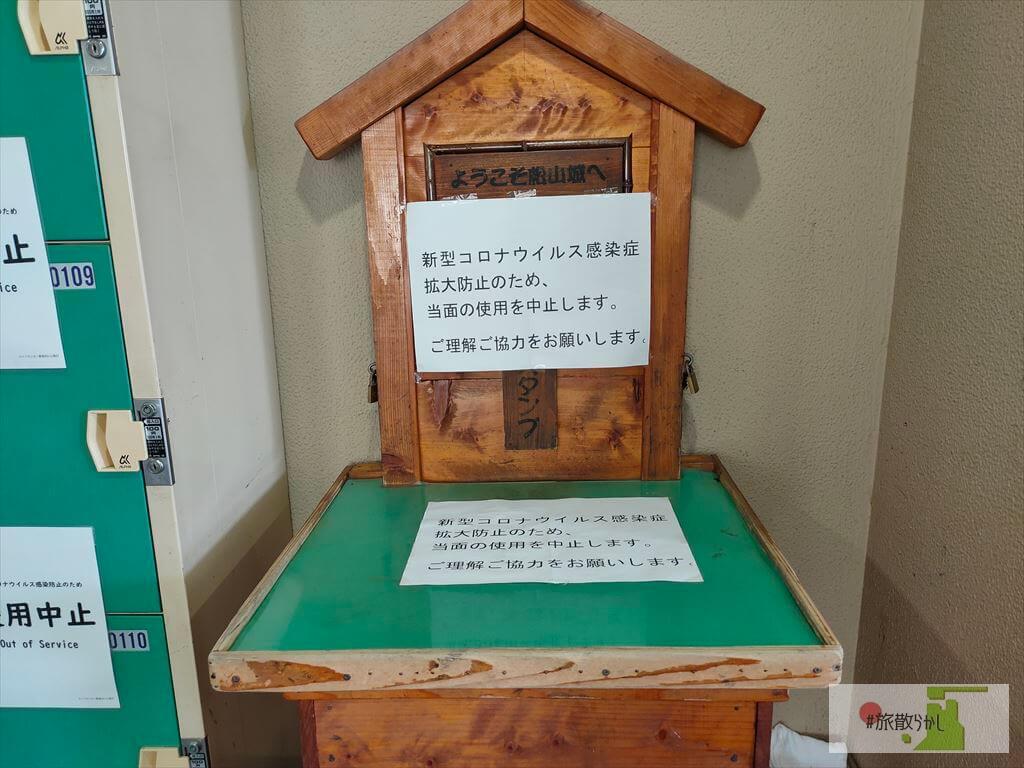 ようこそ松山城へ
新型コロナウイルス感染症
拡大防止のため、
当面の使用を中止します。
ご理解ご協力をお願いします。
タンプ
新型コロナウイルス感染症
拡大防止のため、
当面の使用を中止します。
ご理解ご協力をお願いします。
のため
止
ice
0109
100
ALPHA
ナウイルス感染防止のため
用中止
Out of Service
0110
#旅散らかし